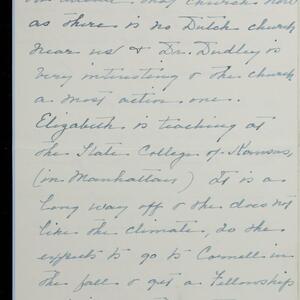 as there is no Dutch church
near us & Dr. Dudley is
very intersting & the church
a most active one.
Elizabeth is teaching at
the State College of Kansas,
(in Manhattan) It is a
long way off & she does not
like the climate, so she
expects to go to Cornell in
the fall & get a Fellowship